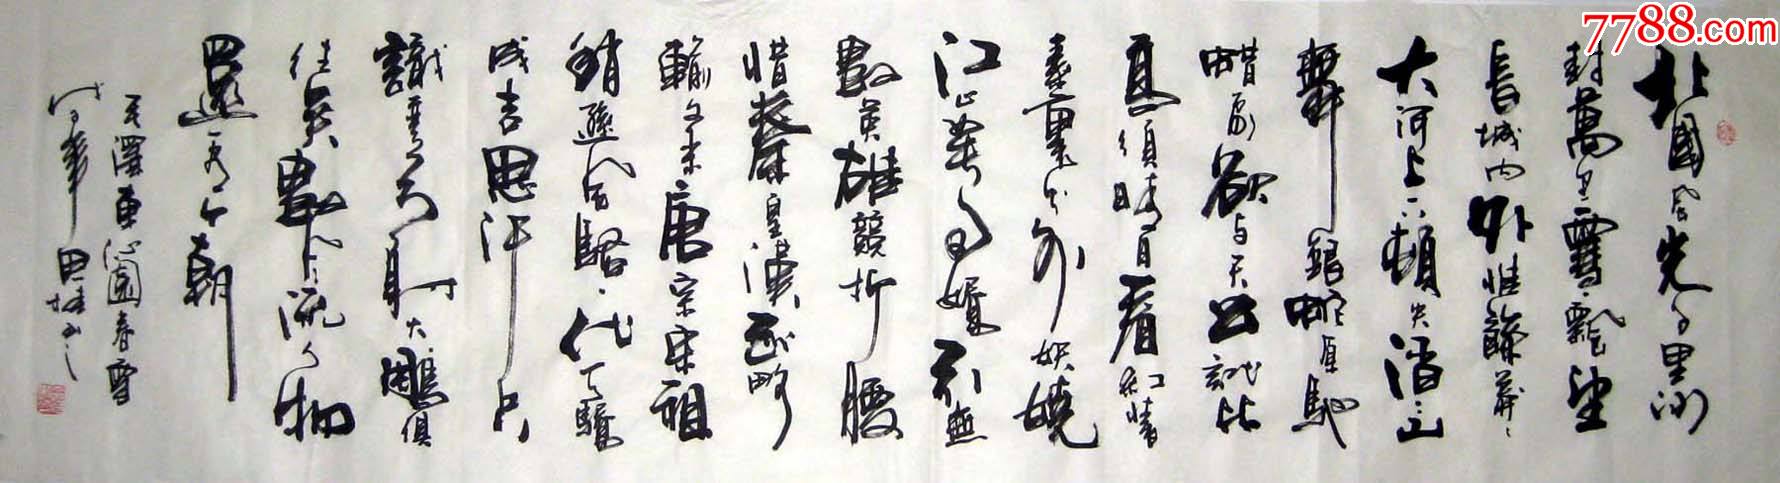 7788.com
北國風光千里冰
封萬里雪飄望
長城内外惟餘莽々
大河上下頓失滔々山
舞銀蛇原馳
蜡象欲与天公試比
高須晴日看紅裝
素裹分外妖嬈
江山如此多嬌引無
數英雄競折腰
惜秦皇漢武略
輸文采唐宗宋祖
稍遜風騷一代天驕
成吉思汗只
識彎弓射大雕俱
往矣數風流人物
還看今朝
毛澤東沁園春雪